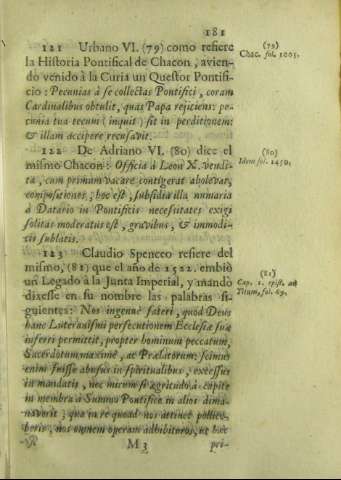 181
121 Urbano VI. (79) como refiere
la Historia Pontifical de Chacon, avien-
do venido à la Curia un Questor Pontifi-
cio: Pecunias à se collectas Pontifici, coram
Cardinalibus obtulit, quas Papa rejiciens: pe-
cunia tua tecum (inquit) sit in perditionem:
& illam accipere recusavit.
122 De Adriano VI. (80) dice el
mismo Chacon: Officia à Leon X. vendi-
ta, cum primum vacare contigerat abolevat,
compositiones, hoc est, subsidia illa numaria
à Datario in Pontificiis necesitates exigi
solitas moderatus est, gravibus, & immodi-
cis sublatis.
123 Claudio Spenceo refiere del
mismo, (81) que el año de 1522. embiò
un Legado à la Junta Imperial, y mandò
dixesse en su nombre las palabras si-
guientes: Nos ingenuè fateri, quod Deus
hanc Luteranismi persecutionem Ecclesiæ suæ
inferri permittit, propter hominum peccatum,
Sacerdotum maximè, ac Prælatorum: scimus
enim fuisse abusus in spiritualibus, excessus
in mandatis, nec mirum si ægritudo à capite
in membra à Summo Pontifice in alios dima-
navorit; qua in re quoad nos attinet pollice-
beris, nos omnem operam adhibituros, ut hæc
M 3 pri-
(79)
Chac. fol. 1005.
(80)
Idem fol. 1450.
(81)
Cap. 1. epist. ad
Titum, fol. 69.